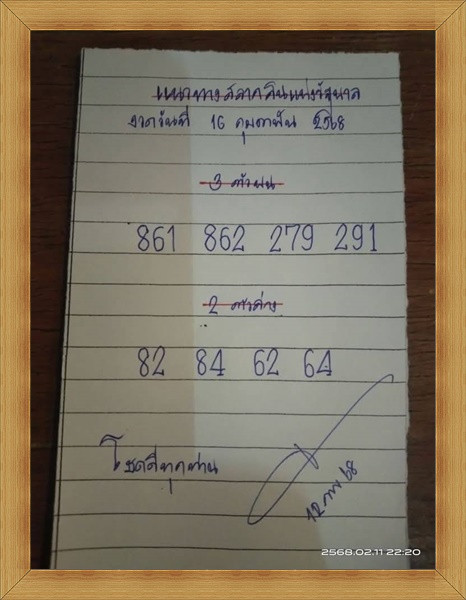 แนวทางสลากกินแบ่งรัฐบาล
งวดวันที่ 16 กุมภาพันธ์ 2568
3 ตัวบน
861 862 279 291
2 ตัวล่าง
82 84 62 64
โชคดีทุกท่าน
12 กพ 68
2568.02.11 22:20